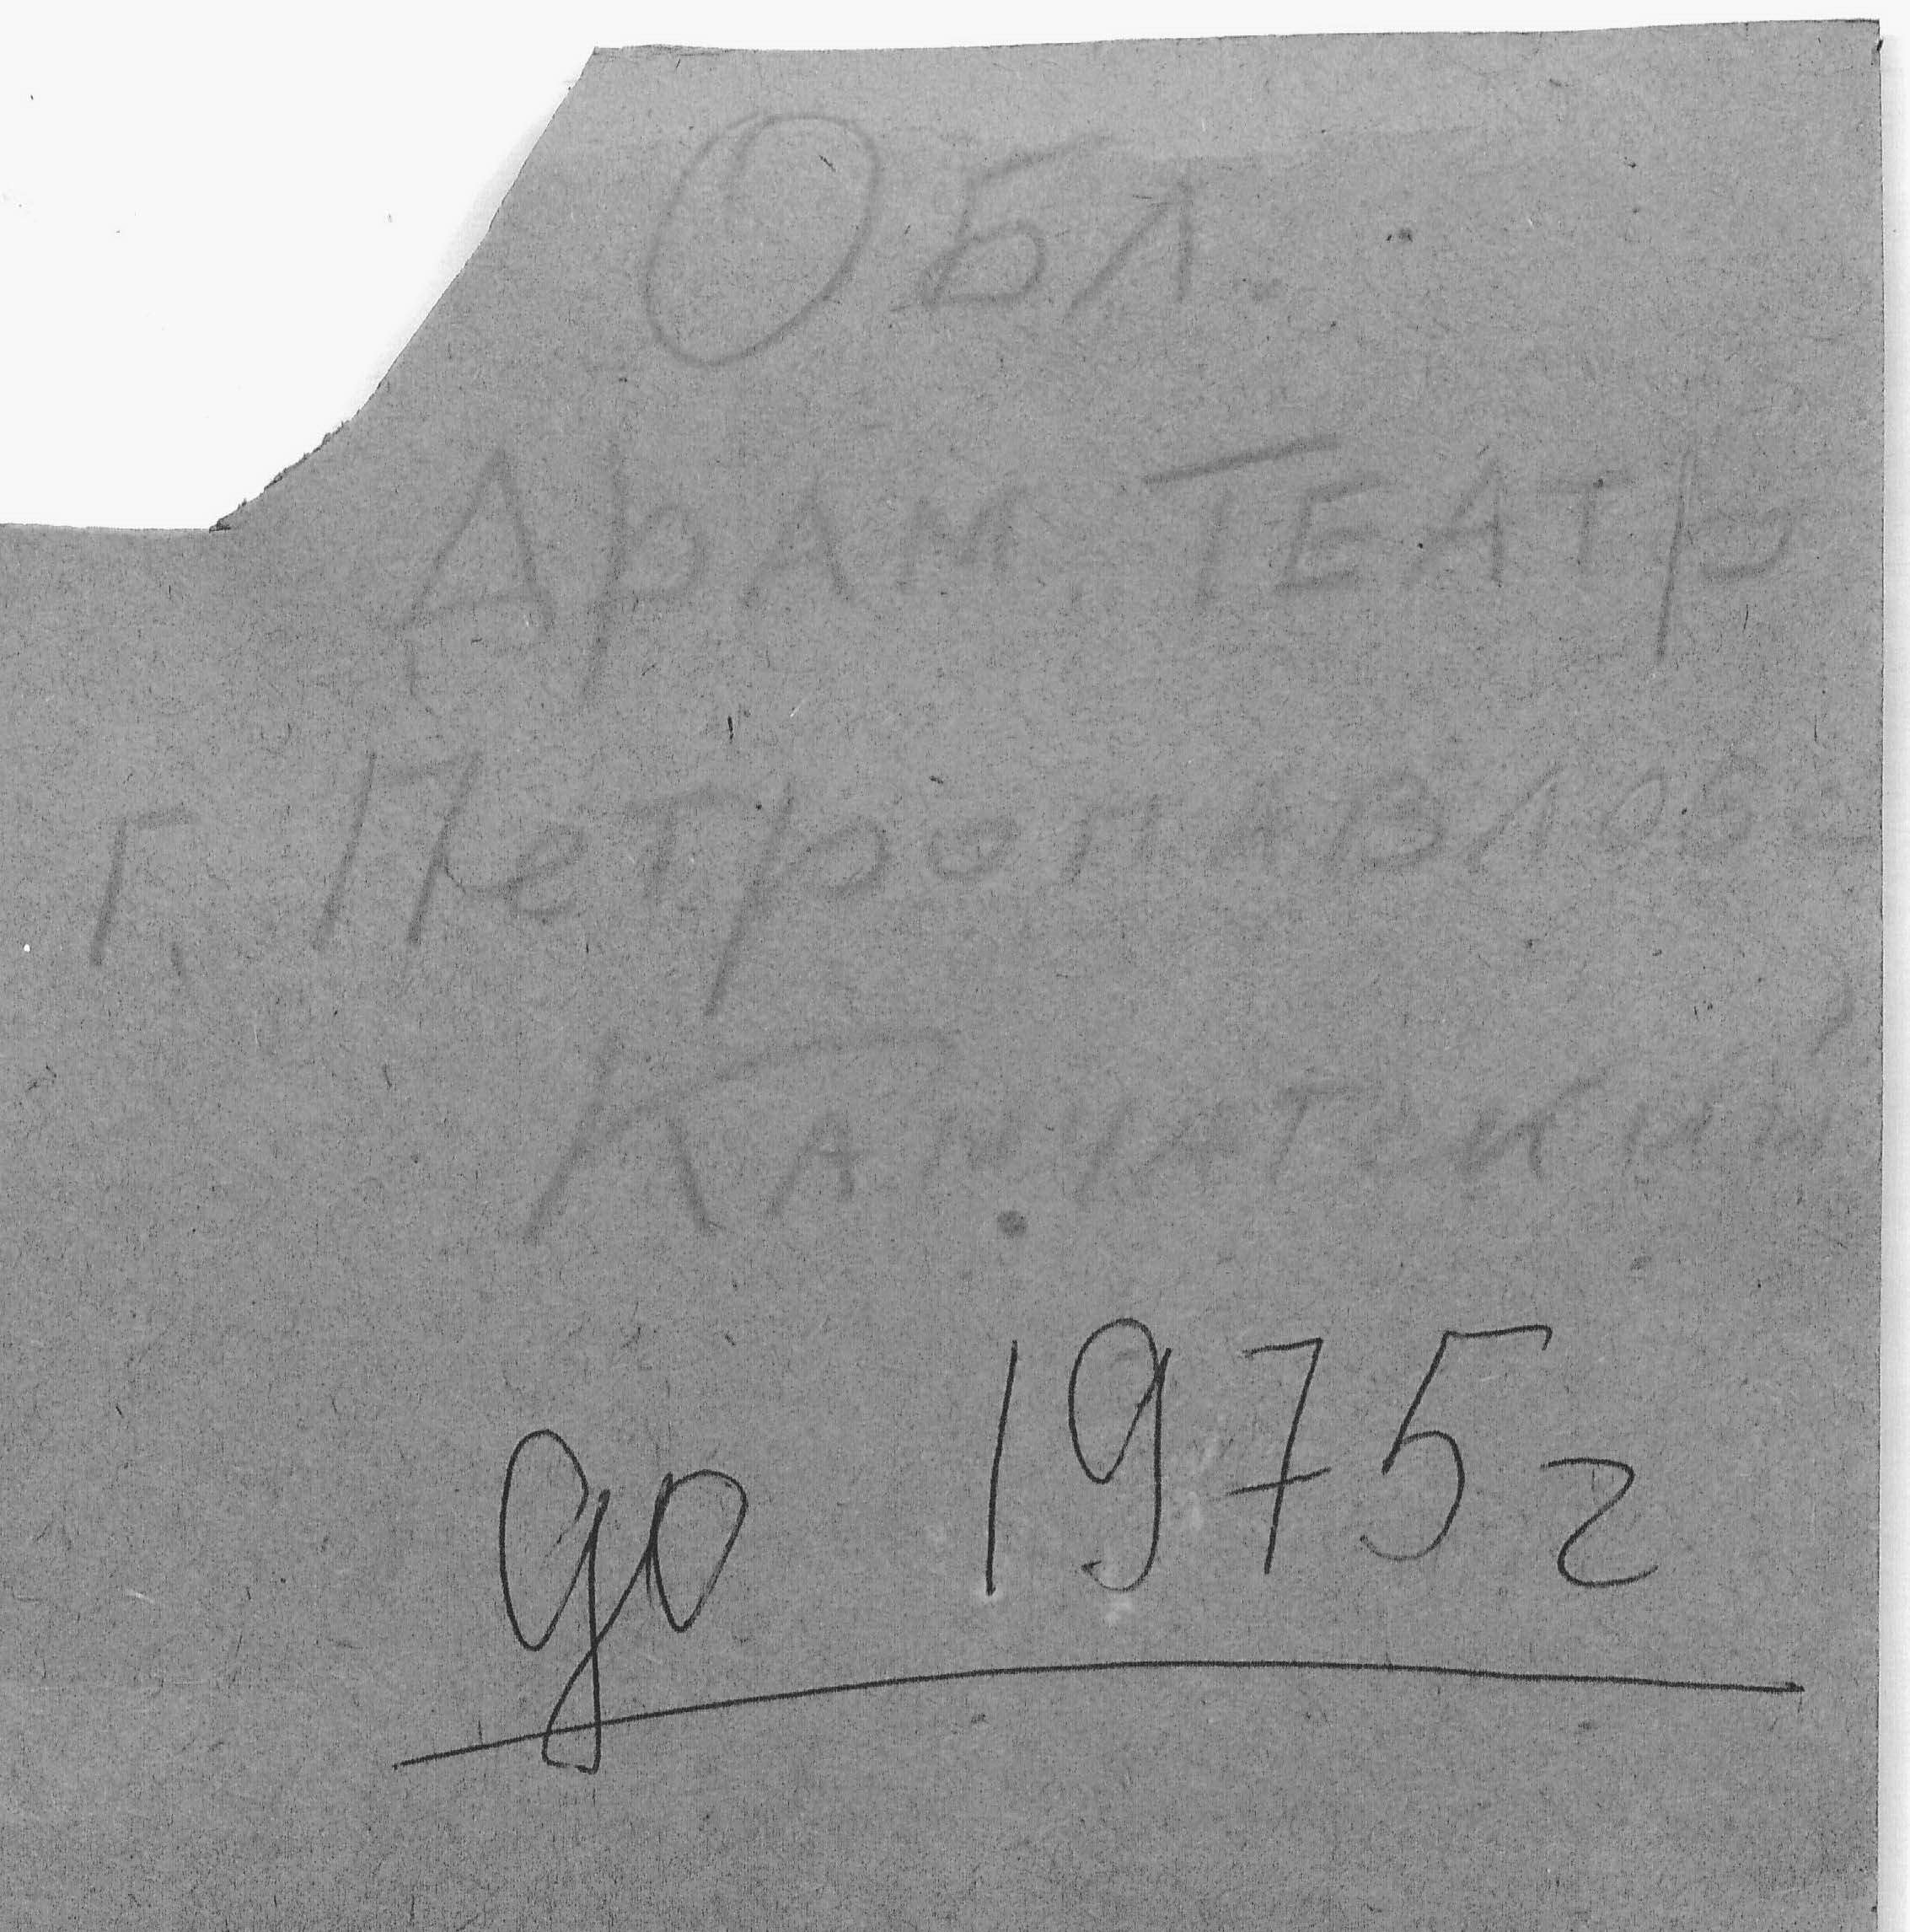 Обл.
Драм. ТЕАТР
г. Петропавловс
Камчатский
до 1975г